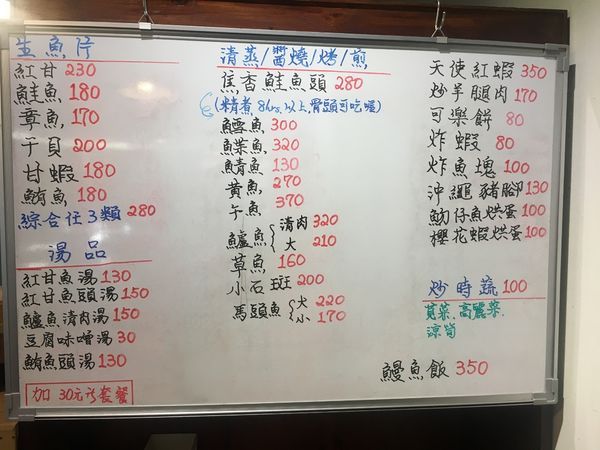 生魚片
紅甘 230
鮭魚 180
章魚 170
干貝 200
甘蝦 180
鮪魚 180
綜合任3類 280
湯品
紅甘魚湯 130
紅甘魚頭湯 150
鱸魚清肉湯 150
豆腐味噌湯 30
鮪魚頭湯 130
加30元升套餐
清蒸/醬燒/烤/煎
焦香鮭魚頭 280
(精煮8hrs.以上,骨頭可吃喔)
鱈魚 300
鰈魚 320
鯖魚 130
黃魚 270
午魚 370
鱸魚 清肉 320
大 210
草魚 160
小石斑 200
馬頭魚 大 220
小 170
天使紅蝦 350
炒羊腿肉 170
可樂餅 80
炸蝦 80
炸魚塊 100
沖繩豬腳 130
魩仔魚烘蛋 100
櫻花蝦烘蛋 100
炒時蔬 100
莧菜、高麗菜、
涼筍
鰻魚飯 350